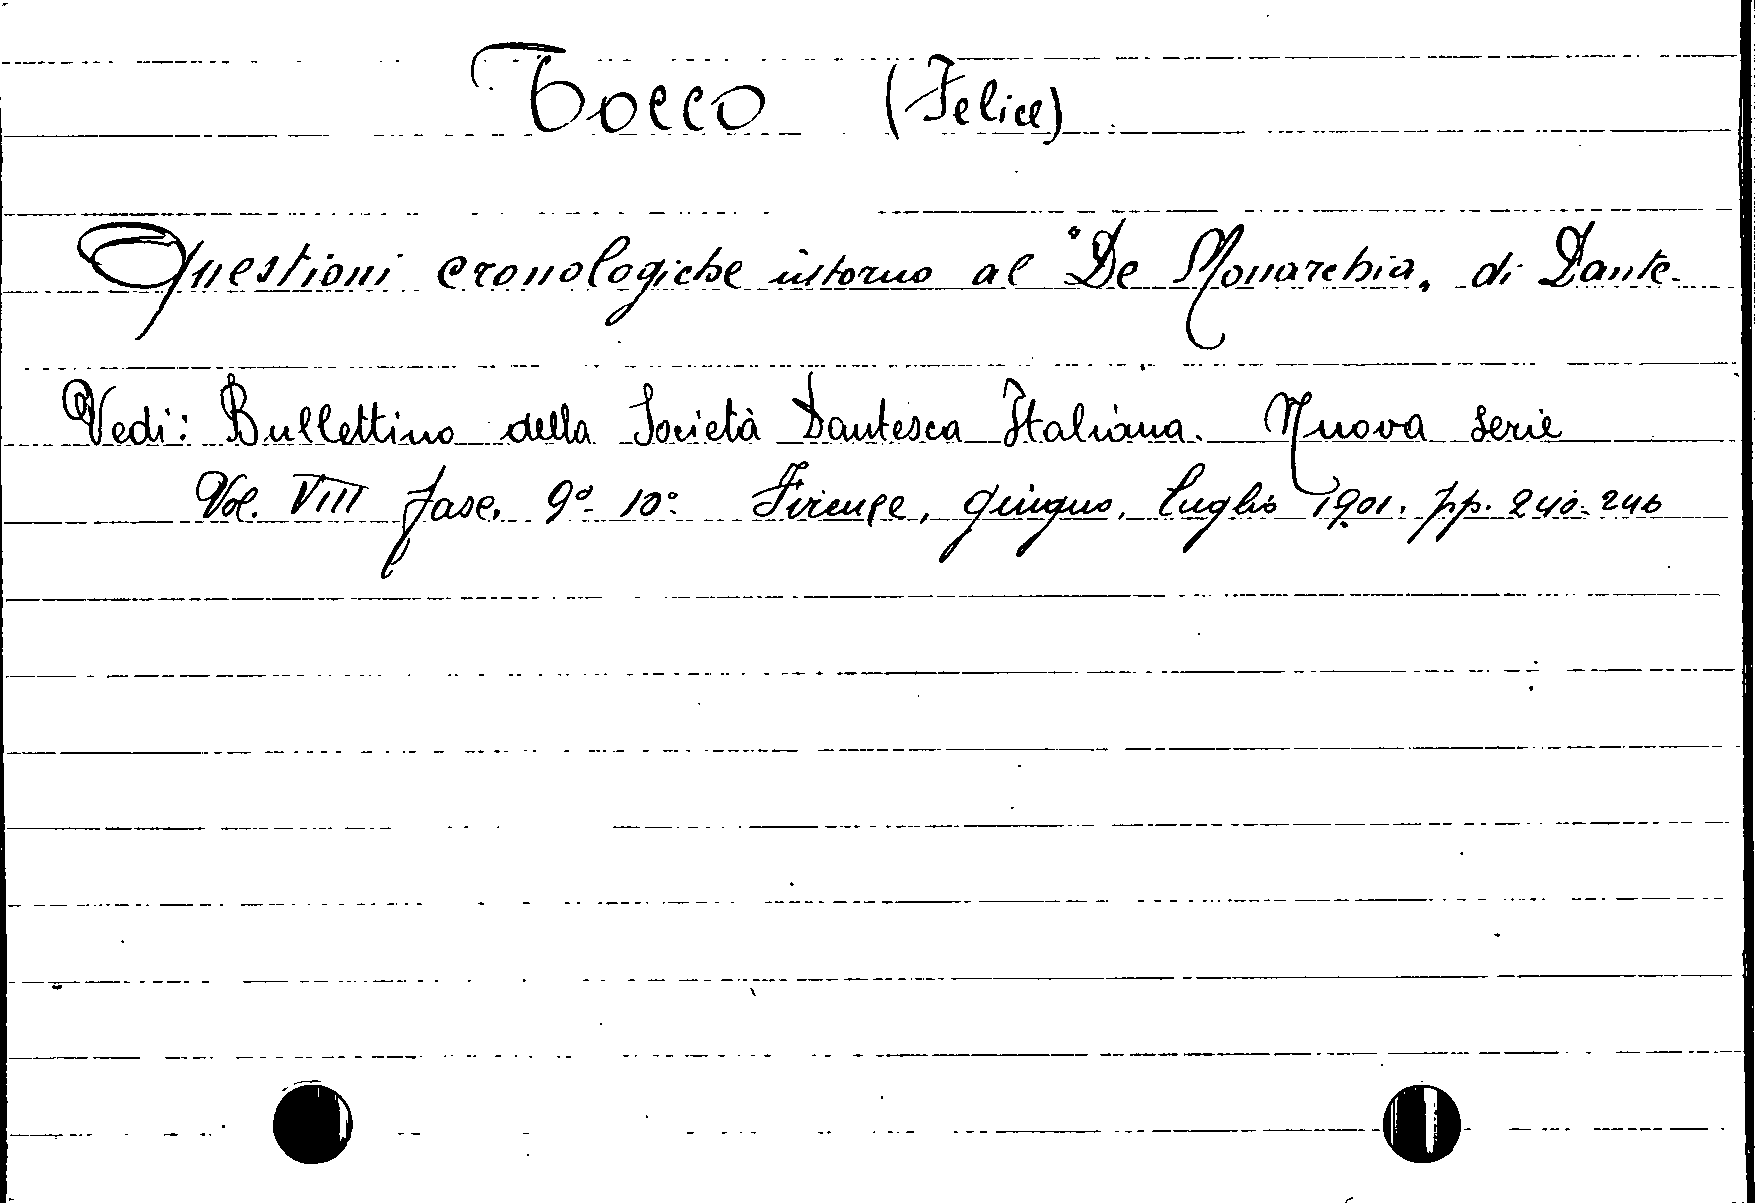 Tocco (Felice)
Questioni cronologiche intorno al "De Monarchia„ di Dante.
Vedi: Bullettino della Società Dantesca Italiana. Nuova serie
Vol. VIII fasc. 9º- 10º Firenze, giugno, luglio 1901. pp. 240-246